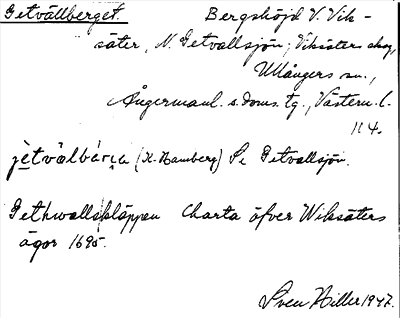 Getvållberget. Bergshöjd V. Vik-
säter, N. Getvallsjön; Viksäters skog,
Ullångers sn.,
Ångermanl. s. doms. tg., Västern. l.
114.
(K. Hamberg) Se Getvallsjön.
Gethwallskläppen Charta öfver Wiksäters
ägor 1695.
Sven Hiller 1947.